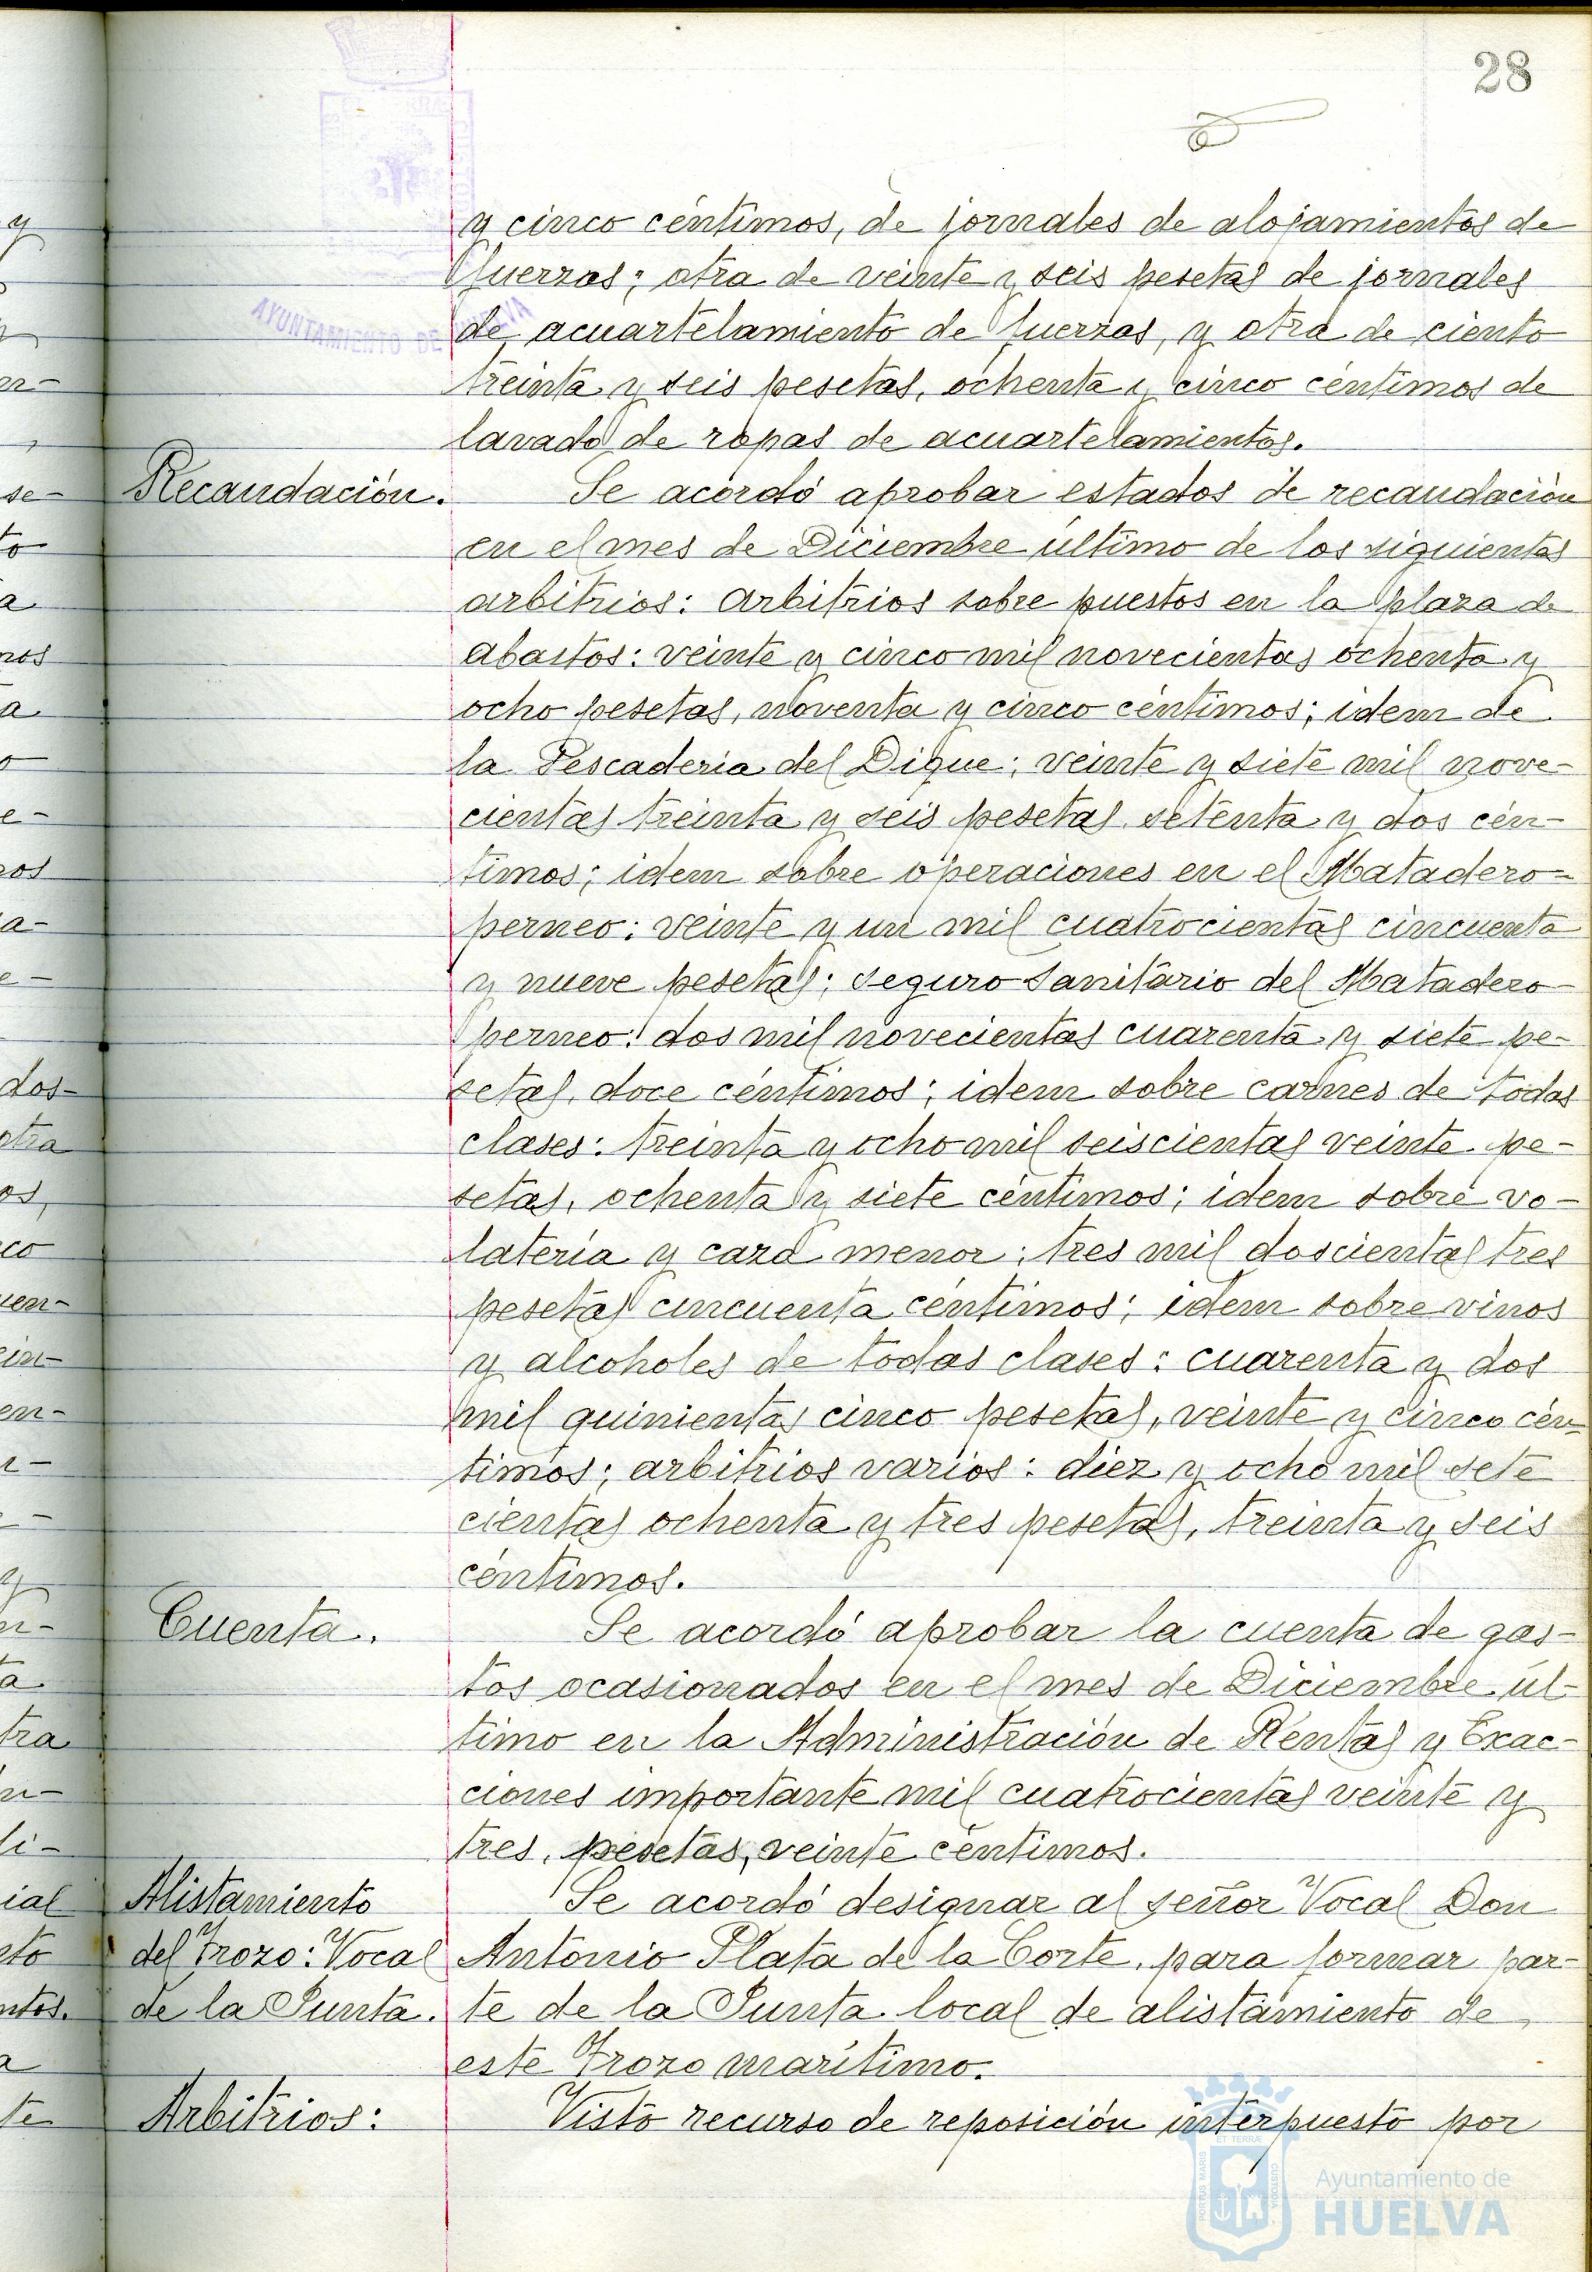 28
y cinco céntimos, de jornales de alojamientos de
fuerzas; otra de veinte y seis pesetas de jornales
de acuartelamiento de fuerzas, y otra de ciento
treinta y seis pesetas, ochenta y cinco céntimos de
lavado de ropas de acuartelamientos.
Recaudación. Se acordó aprobar estados de recaudación
en el mes de Diciembre último de los siguientes
arbitrios: arbitrios sobre puestos en la plaza de
abastos: veinte y cinco mil novecientas ochenta y
ocho pesetas, noventa y cinco céntimos; idem de
la Pescaderia del Dique; veinte y siete mil nove-
cientas treinta y seis pesetas setenta y dos cén-
timos; idem sobre operaciones en el Matadero-
perneo: veinte y un mil cuatrocientas cincuenta
y nueve pesetas; seguro sanitario del Matadero-
perneo: dos mil novecientas cuarenta y siete pe-
setas, doce céntimos; idem sobre carnes de todas
clases: treinta y ocho mil seiscientas veinte pe-
setas, ochenta y siete céntimos; idem sobre vo-
latería y caza menor: tres mil doscientas tres
pesetas cincuenta céntimos; idem sobre vinos
y alcoholes de todas clases: cuarenta y dos
mil quinientas cinco pesetas, veinte y cinco cén-
timos; arbitrios varios: diez y ocho mil sete
cientas ochenta y tres pesetas, treinta y seis
céntimos.
Cuenta. Se acordó aprobar la cuenta de gas-
tos ocasionados en el mes de Diciembre úl-
timo en la Administración de Rentas y Exac-
ciones importante mil cuatrocientas veinte y
tres, pesetas, veinte céntimos.
Alistamiento Se acordó designar al señor Vocal Don
del Trozo: Vocal Antonio Plata de la Corte, para formar par-
de la Junta. te de la Junta local de alistamiento de
este Trozo marítimo.
Arbitrios: Visto recurso de reposición interpuesto por
AYUNTAMIENTO DE HUELVA
Ayuntamiento de
HUELVA